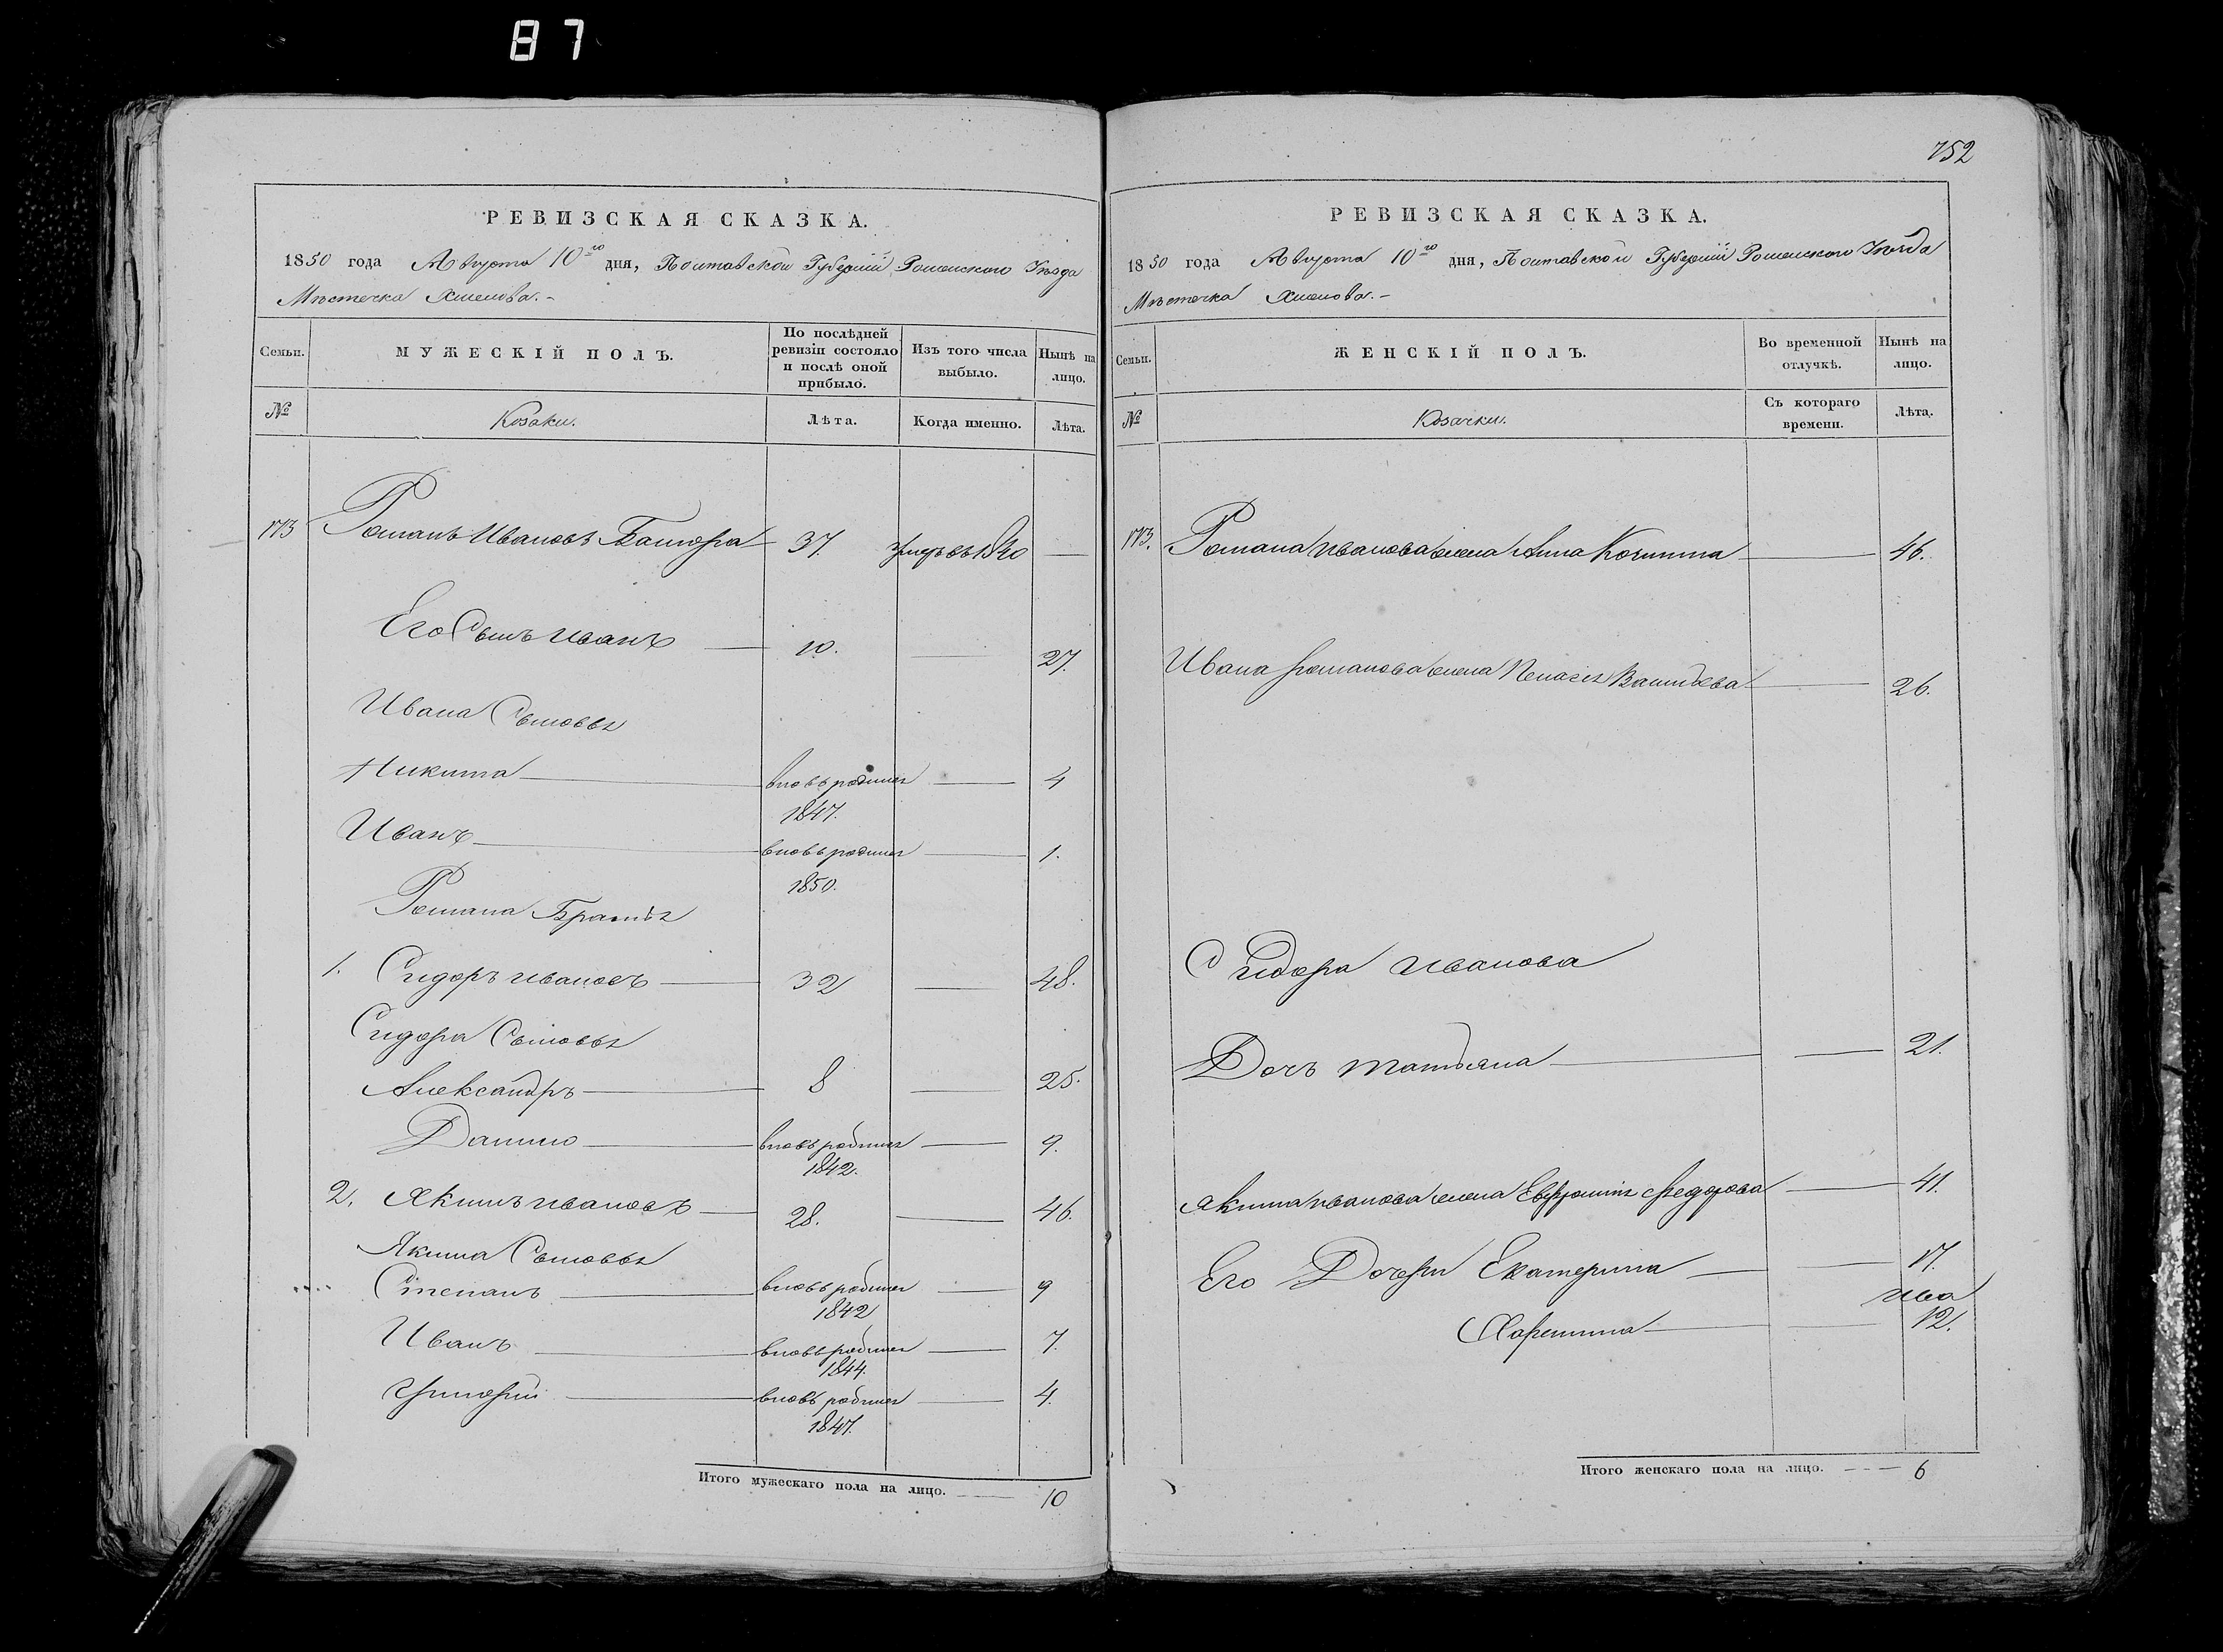 87
РЕВИЗСКАЯ СКАЗКА.
1850 года Августа 10го дня, Полтавской Губерніи Роменскаго Уѣзда
Мѣстечка Хмелова.-
Семьи.
МУЖЕСКІЙ ПОЛЪ.
По послѣдней ревизіи состояло и послѣ оной прибыло.
Изъ того числа выбыло.
Нынѣ на лицо.
№
Козаки.
Лѣта.
Когда именно.
Лѣта.
173 Романъ Ивановъ 37. —
Его Сынъ Иванъ — 10. — 27.
Ивана Сыновья
Никита — вновь родился — 4
1847.
Иванъ — вновь родился — 1.
1850.
Романа Братья
1. Сидоръ Ивановъ — 32 — 48.
Сидора Сыновья
Александръ — 8 — 25.
Данило — вновь родился — 9.
1842.
2. Якимъ Ивановъ — 28. — 46.
Якима Сыновья
Степанъ — вновь родился — 9
1842
Иванъ — вновь родился — 7.
1844.
Григорій — вновь родился — 4.
1847.
Итого мужескаго пола на лицо. — 10
752
РЕВИЗСКАЯ СКАЗКА.
1850 года Августа 10го дня, Полтавской Губерніи Роменскаго Уѣзда
Мѣстечка Хмелова.-
Семьи.
ЖЕНСКІЙ ПОЛЪ.
Во временной отлучкѣ.
Нынѣ на лицо.
№
Козачки.
Съ котораго времени.
Лѣта.
173. Романа Иванова жена Анна — 46.
Ивана Романова жена Пелагея Васильева — 26.
Сидора Иванова
Дочь Татьяна — — 21.
Якима Иванова жена Евфросинія Федорова — 41.
Его Дочери Екатерина — — 17.
— — 12.
Итого женскаго пола на лицо. — — 6